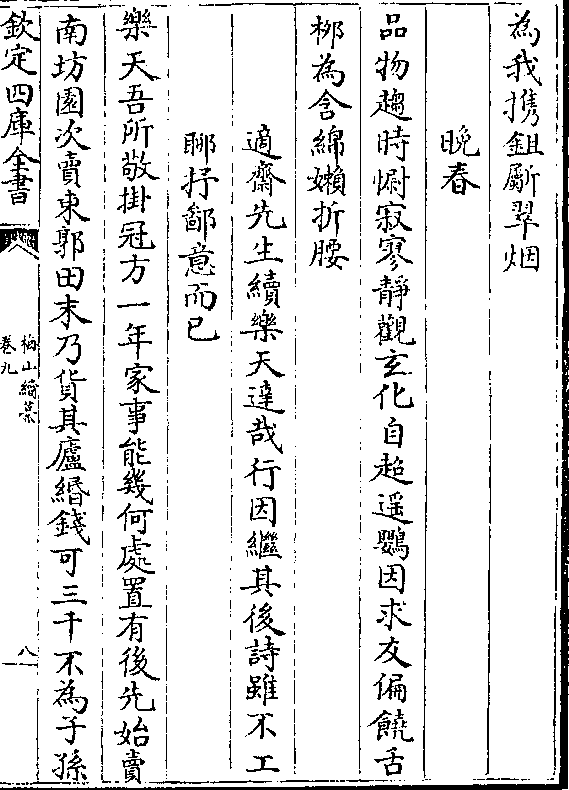 為我携鉏斸翠烟
晚春
品物趨時慰寂寥靜觀玄化自超遥鸚因求友偏饒舌
柳為含綿嬾折腰
適齋先生續樂天達哉行因繼其後詩雖不工
聊抒鄙意而已
樂天吾所敬掛冠方一年家事能幾何處置有後先始賣
南坊園次賣東郭田末乃貨其廬緡錢可三千不為子孫
欽定四庫全書
梅山續藁
卷九
八